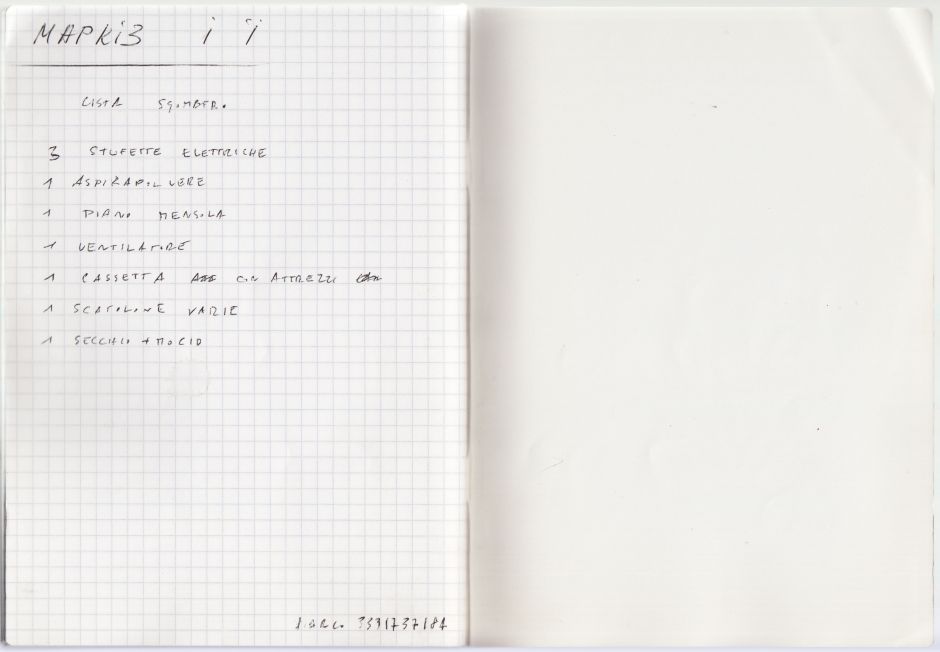 МАРКІЗ і ї
LISTA SGOMBERO
3 STUFETTE ELETTRICHE
1 ASPIRAPOLVERE
1 PIANO MENSOLA
1 VENTILATORE
1 CASSETTA CON ATTREZZI
1 SCATOLONE VARIE
1 SECCHIO + MOCIO